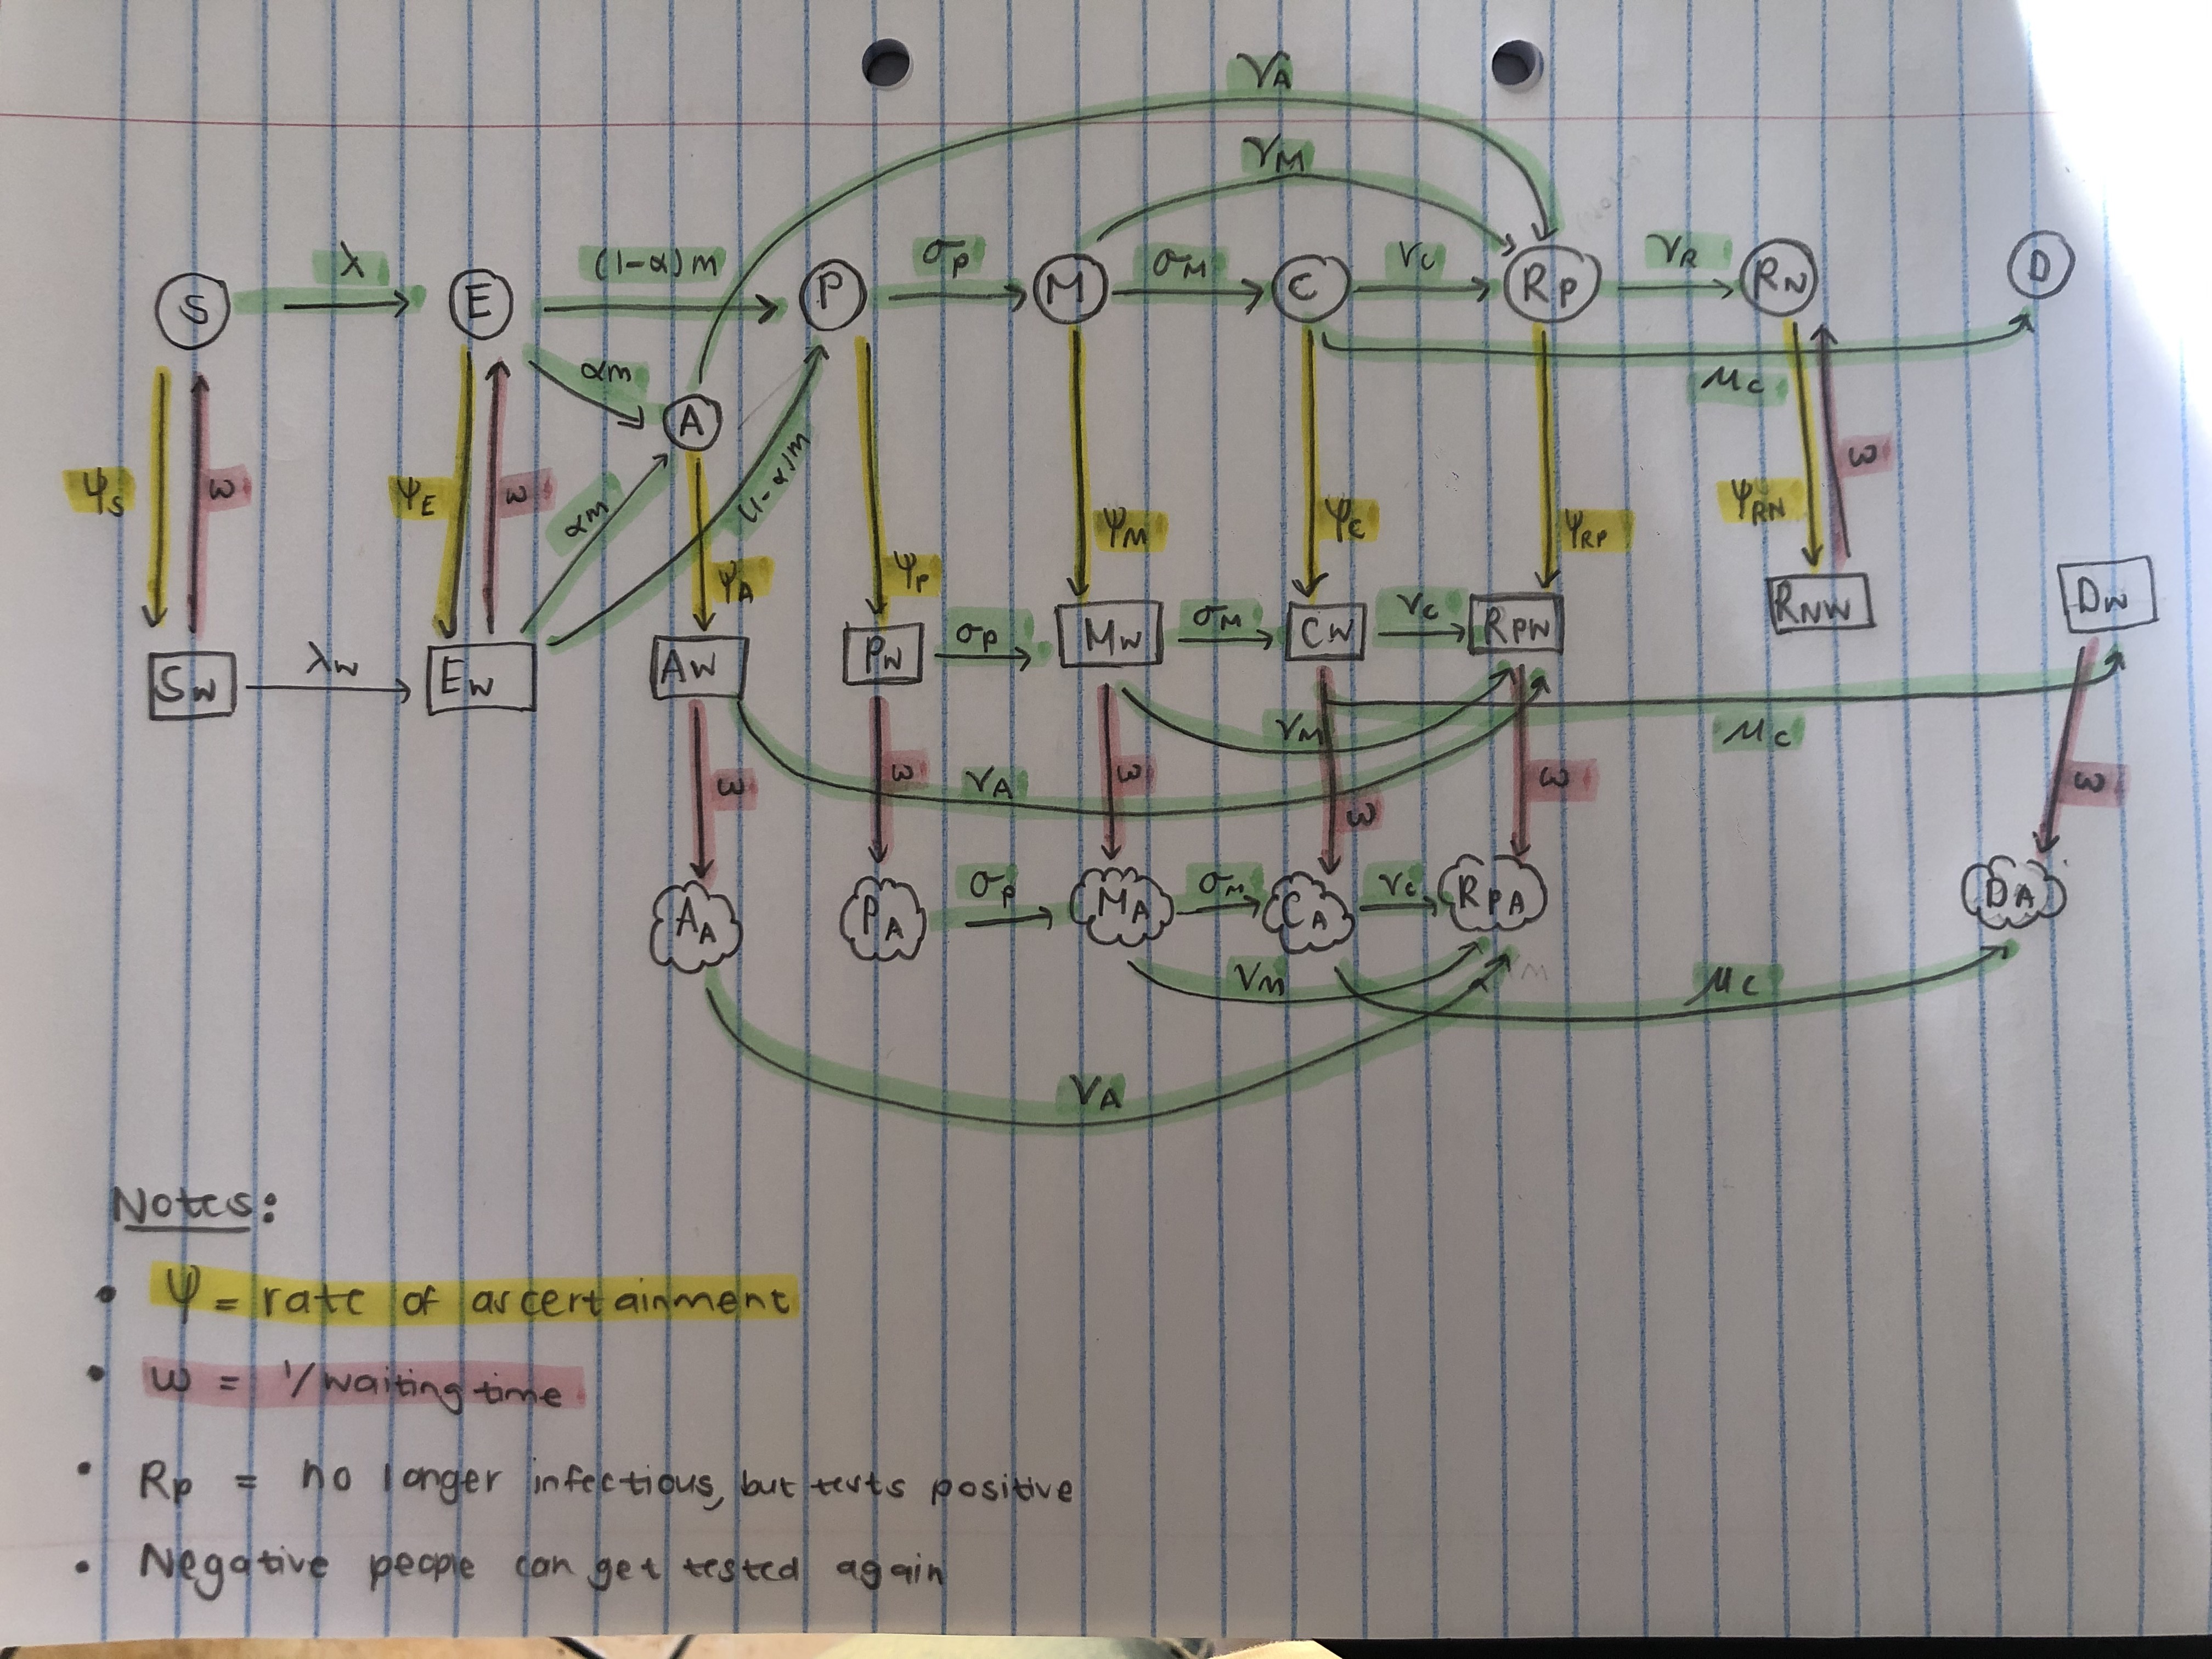 γA
γM
λ
(1-α)m
σP
σM
γC
γR
S
E
P
M
C
RP
RN
D
αm
μC
A
ψS
ω
ψE
ω
αm
(1-α)m
ψA
ψP
ψM
ψC
ψRP
ψRN
ω
SW
λW
EW
AW
PW
σP
MW
σM
CW
γC
RPW
RNW
DW
γM
μC
ω
ω
γA
ω
ω
ω
ω
AA
PA
σP
MA
σM
CA
γC
RPA
DA
γM
M
μC
γA
Notes:
• ψ = rate of ascertainment
• ω = 1/waiting time
• Rp = no longer infectious, but tests positive
• Negative people can get tested again